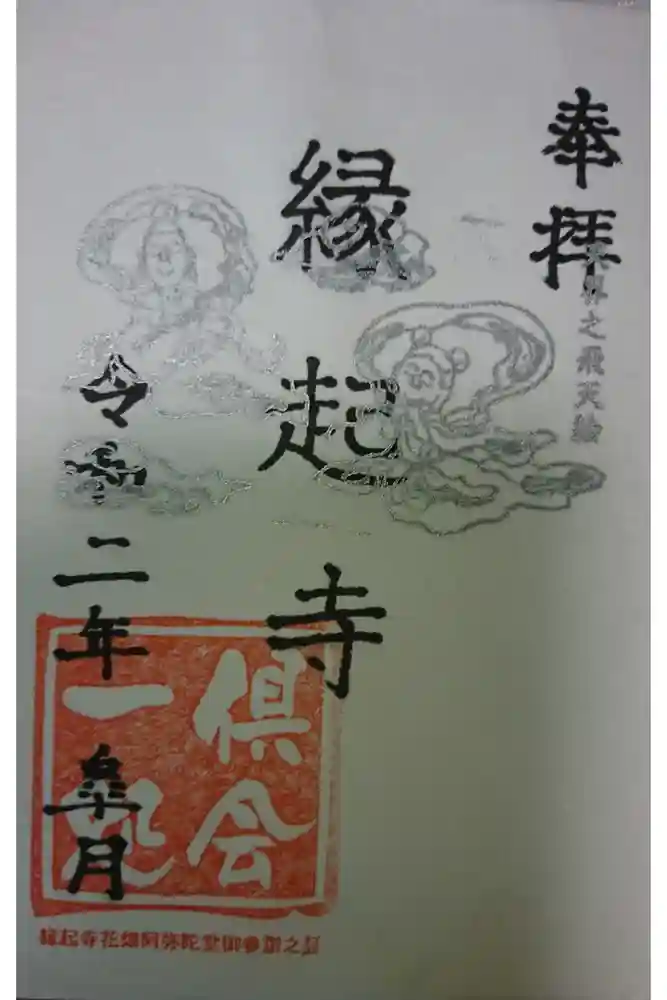 奉拝
界之飛天絵
縁起寺
令和二年皐月
倶会
一処
縁起寺花畑阿弥陀堂御參詣之証